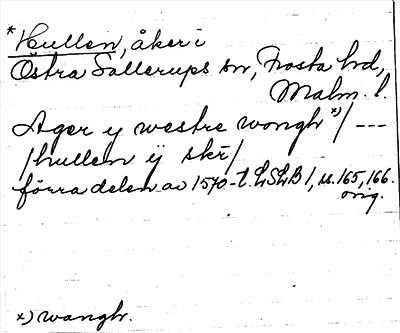 *Hullen, åker i
Östra Sallerups sn, Frosta hrd,
Malm. l.
Ager y westre wongh *) / ---
/hullen ÿ skr/
förra delen av 1570-t. LSLB 1, s. 165, 166.
orig.
*) wangh.